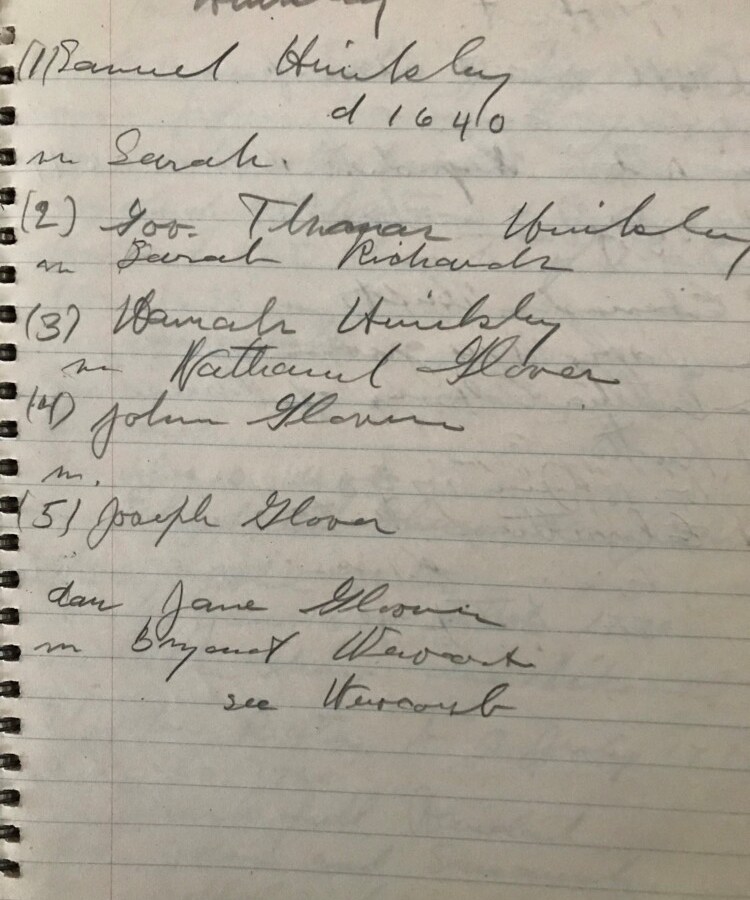 Hinckley
(1) Samuel Hinckley
d 1640
m Sarah.
(2) Gov. Thomas Hinckley
m Sarah Richards
(3) Hannah Hinckley
m Nathaniel Glover
(4) John Glover
m.
(5) Joseph Glover
dau Jane Glover
m Bryant Newcomb
see Newcomb